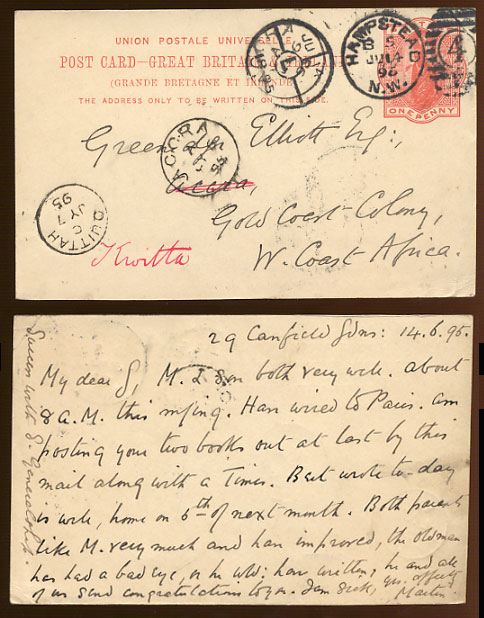 UNION POSTALE UNIVERSELLE
POST CARD—GREAT BRITAIN & IRELAND
(GRANDE BRETAGNE ET IRLANDE)
THE ADDRESS ONLY TO BE WRITTEN ON THIS SIDE.
ONE PENNY
HAMPSTEAD
B 5
JU 14
95
N.W.
ACCRA
ACCRA
95
QUITTAH
C
JY 7
95
Elliott Esq:,
Accra,
Gold Coast Colony,
Kwitta
W. Coast Africa.
29 Canfield Gdns: 14.6.95.
My dear G, M. & Son both very well. about
8 A.M. this mng. Have wired to Paris. am
posting your two books out at last by this
mail along with a Times. Bert wrote to-day
is well, home on 6th of next month. Both parents
like M. very much and have improved, the old man
has had a bad eye, or he wld: have written, he and all
of us send congratulations to you. Martin
Success with &. Generalship.